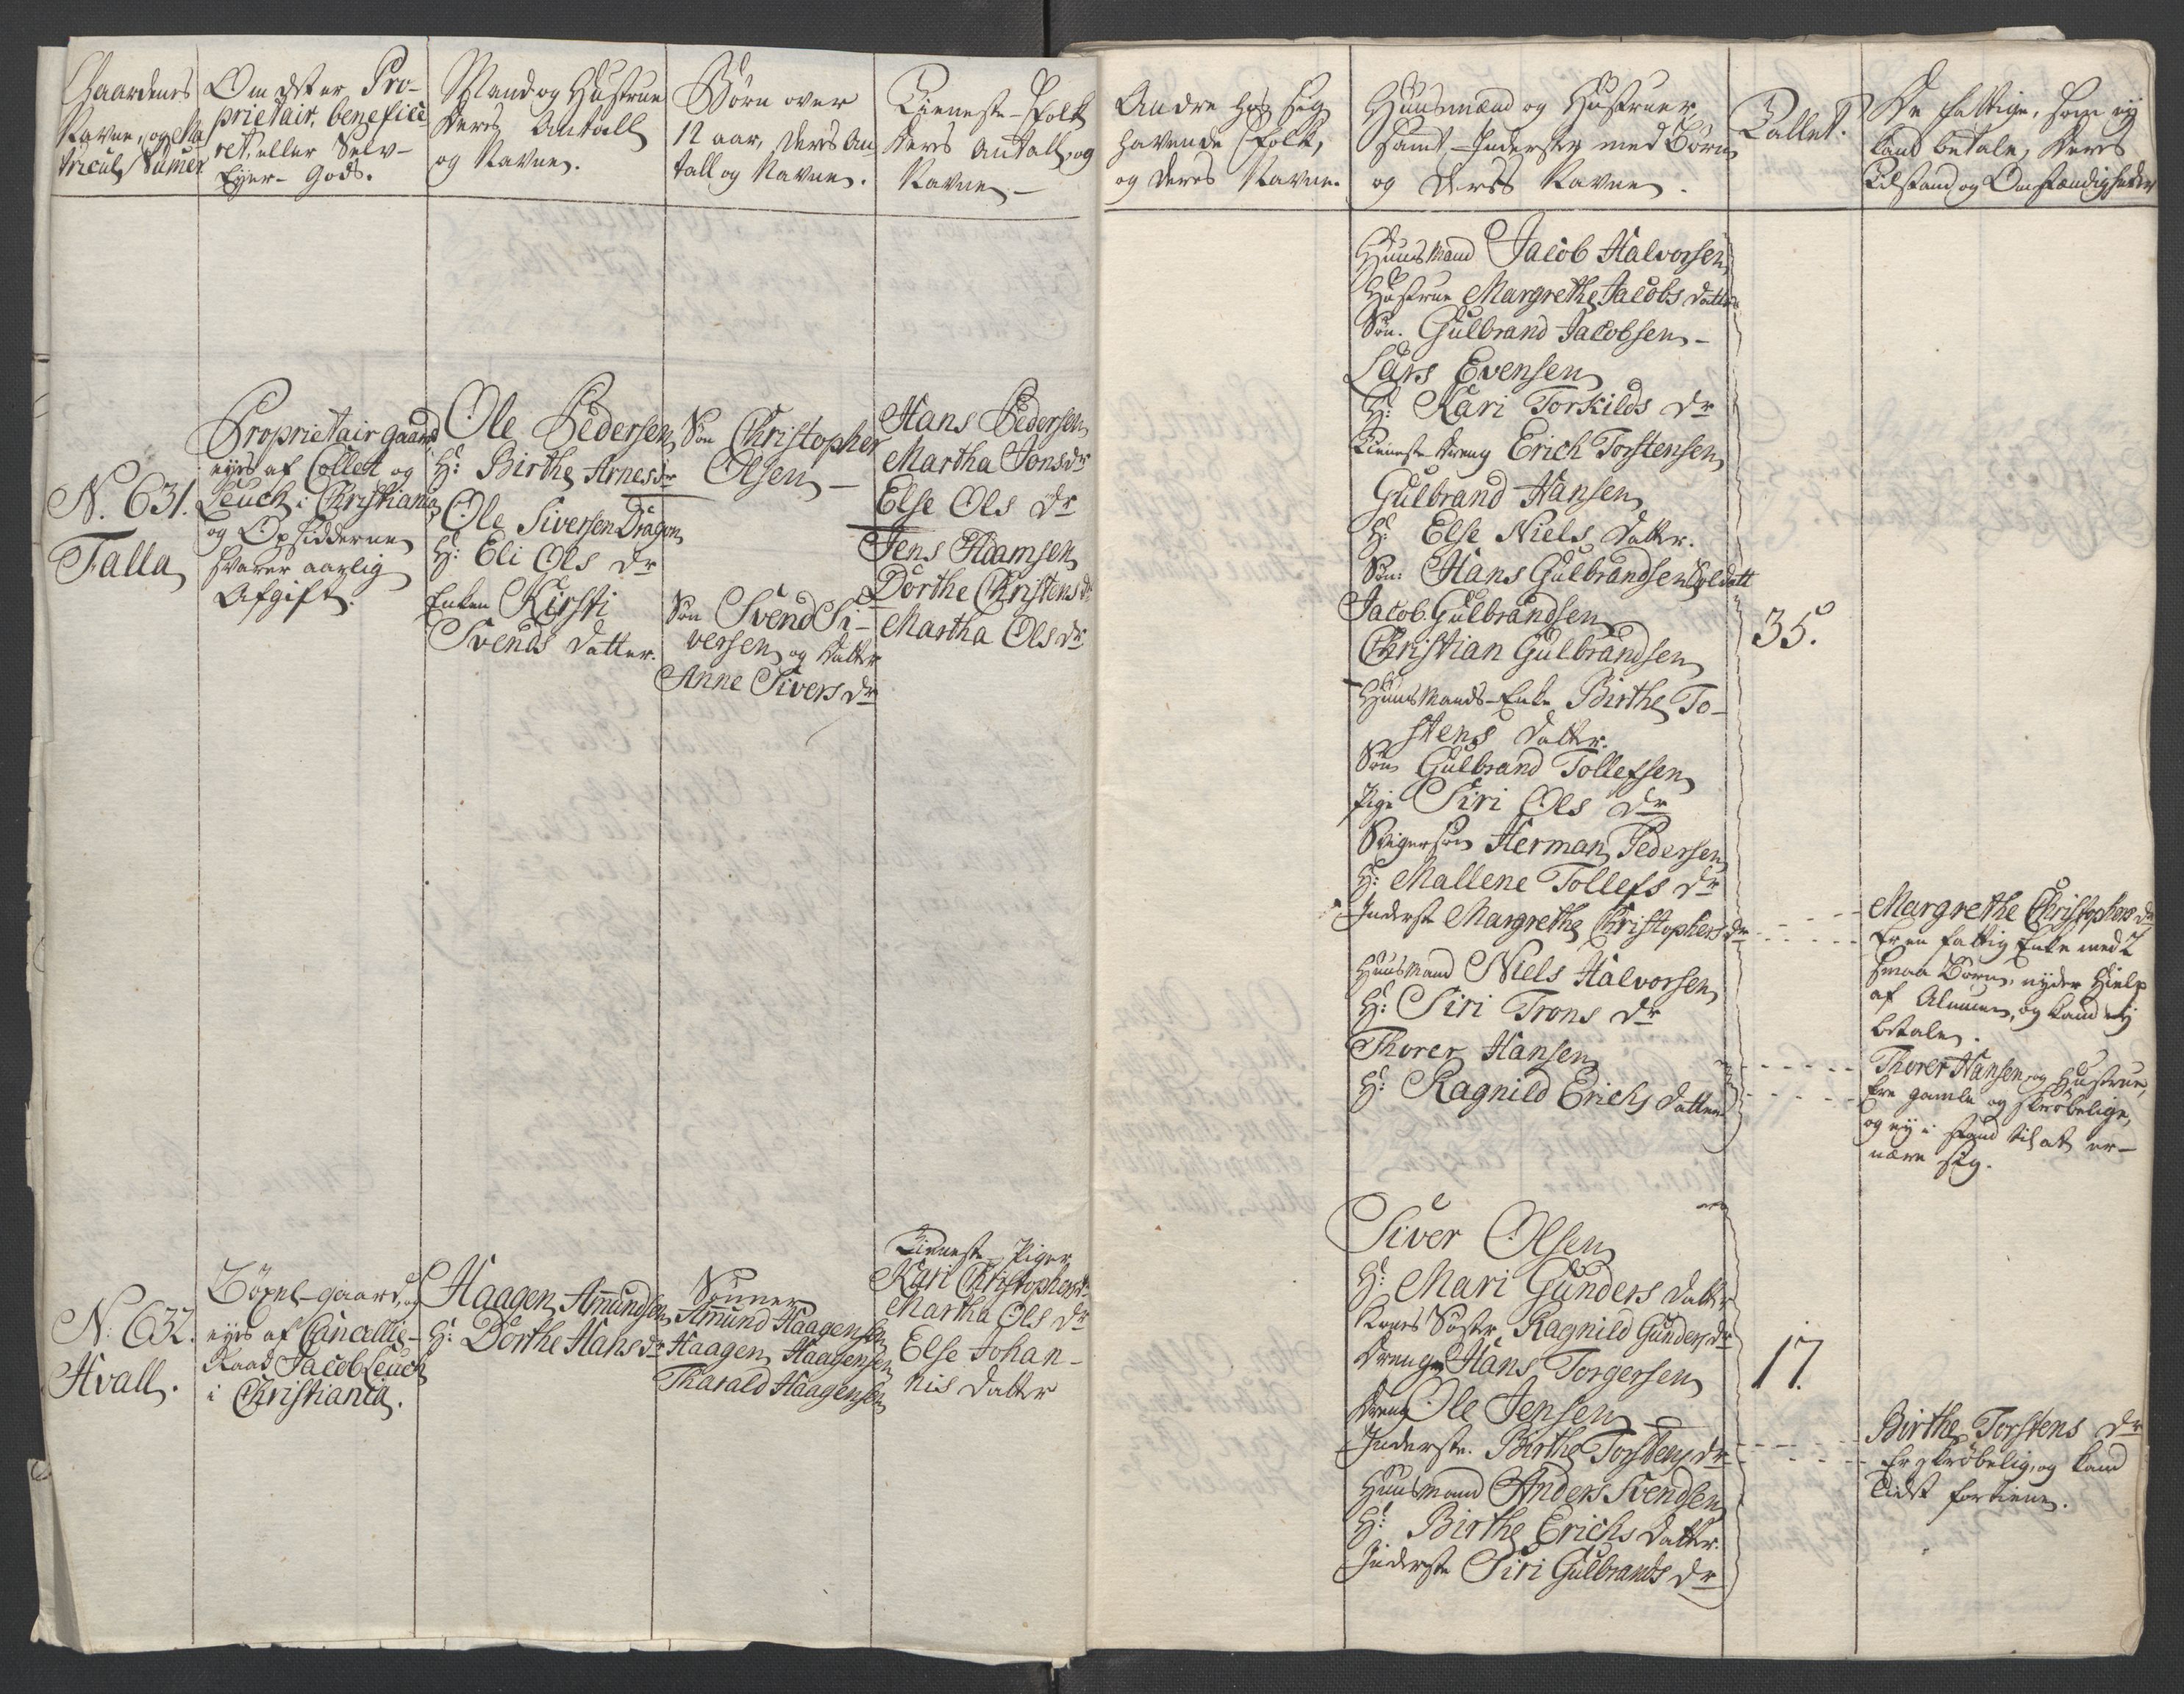 Gaardenes
Navne, og Ma
tricul Numer
Om det er Pro-
prietair, benefice
ret, eller Selv-
Eyer-Gods.
Mand og Hustrue
deres Antall
og Navne.
Børn over
12 aar, deres An
tall og Navne.
Tieneste-Folk
deres Antall, og
Navne
Andre hos sig
havende Folk,
og deres Navne.
Huusmænd og Hustruer,
samt Inderster med Børn
og deres Navne.
Tallet.
De fattige, som ey
kand betale, deres
Tilstand og Omstændigheder
N. 631.
Falla
Proprietair gaard
eyes af Collett og
Leuch i Christiania
og Opsidderne
svarer aarlig
Afgift.
Ole Pedersen
H: Birthe Arnes dr
Ole Siversen Dragon
H: Eli Ols dr
Enken Kirsti
Svends datter.
Søn Christopher
Olsen
Søn Svend Si-
versen og datter
Anne Sivers dr
Hans Pedersen
Martha Jons dr
Else Ols dr
Jens Adamsen
Dorthe Christens dr
Martha Ols dr
Huusmand Jacob Halvorsen
Hustrue Margrethe Jacobs datter
Søn. Gulbrand Jacobsen
Lars Evensen
H: Kari Torkilds dr
Tieneste dreng Erich Torstensen
Gulbrand Hansen
H: Else Niels datter.
Søn: Hans Gulbrandsen Soldatt
Jacob Gulbrandsen
Christian Gulbrandsen
Huusmands-Enke Birthe To-
stens datter.
Søn Gulbrand Tollefsen
Pige Siri Ols dr
Svigersøn Herman Pedersen
H: Mallene Tollefs dr
Inderste Margrethe Christophers dr
Huusmand Niels Halvorsen
H: Siri Trons dr
Thorer Hansen
H: Ragnild Erichs datter
35.
Margrethe Christophers dr
Er en fattig Enke med 2
smaa Børn, nyder Hielp
af Almuen, og kand ej
betale.
Thorer Hansen og Hustrue,
Ere gamle og skrøbelige,
og ey i stand til at er-
nære sig.
N. 632.
Hvall.
Bøxel-gaard, og
eyes af Cancellie-
Raad Jacob Leuch
i Christiania.
Haagen Amundsen
H: Dorthe Hans dr
Sønner
Amund Haagensen
Haagen Haagensen
Tharald Haagensen
Tieneste Piger
Kari Christophers dr
Martha Ols dr
Else Johan-
nis datter
Siver Olsen
H: Mari Gunders datter
Konens Søster Ragnild Gunders dr
drenge Hans Torgersen
dreng Ole Jensen
Inderste. Birthe Torstens dr
Huusmand Anders Svendsen
H: Birthe Erichs datter.
Inderste Siri Gulbrands dr
17.
Birthe Torstens dr
Er skrøbelig, og kand
lidet fortiene.